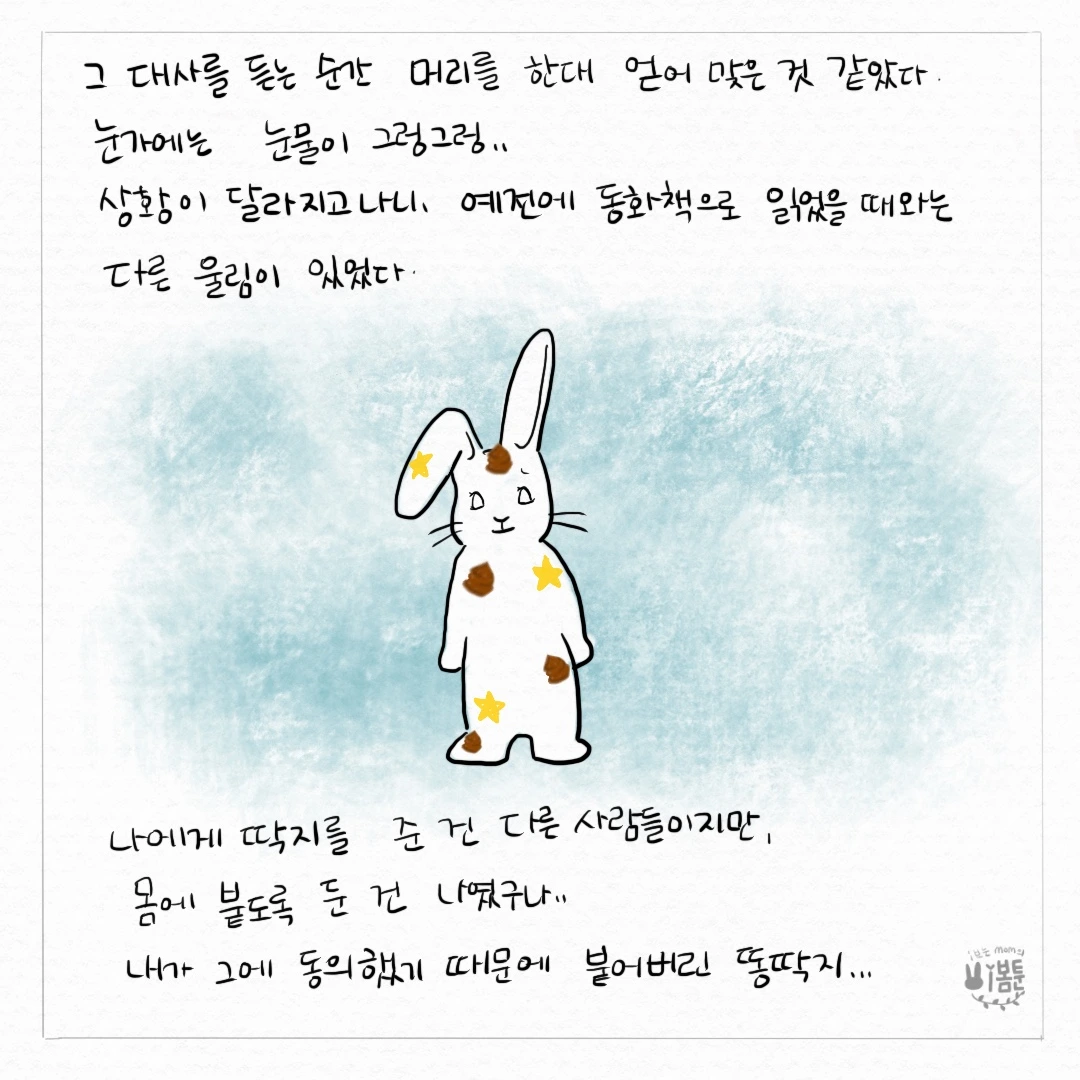 그 대사를 듣는 순간 머리를 한대 얻어 맞은 것 같았다.
눈가에는 눈물이 그렁그렁..
상황이 달라지고나니, 예전에 동화책으로 읽었을 때와는
다른 울림이 있었다.
나에게 딱지를 준 건 다른 사람들이지만,
몸에 붙도록 둔 건 나였구나..
내가 그에 동의했기 때문에 붙어버린 똥딱지...
mom의
봄툰